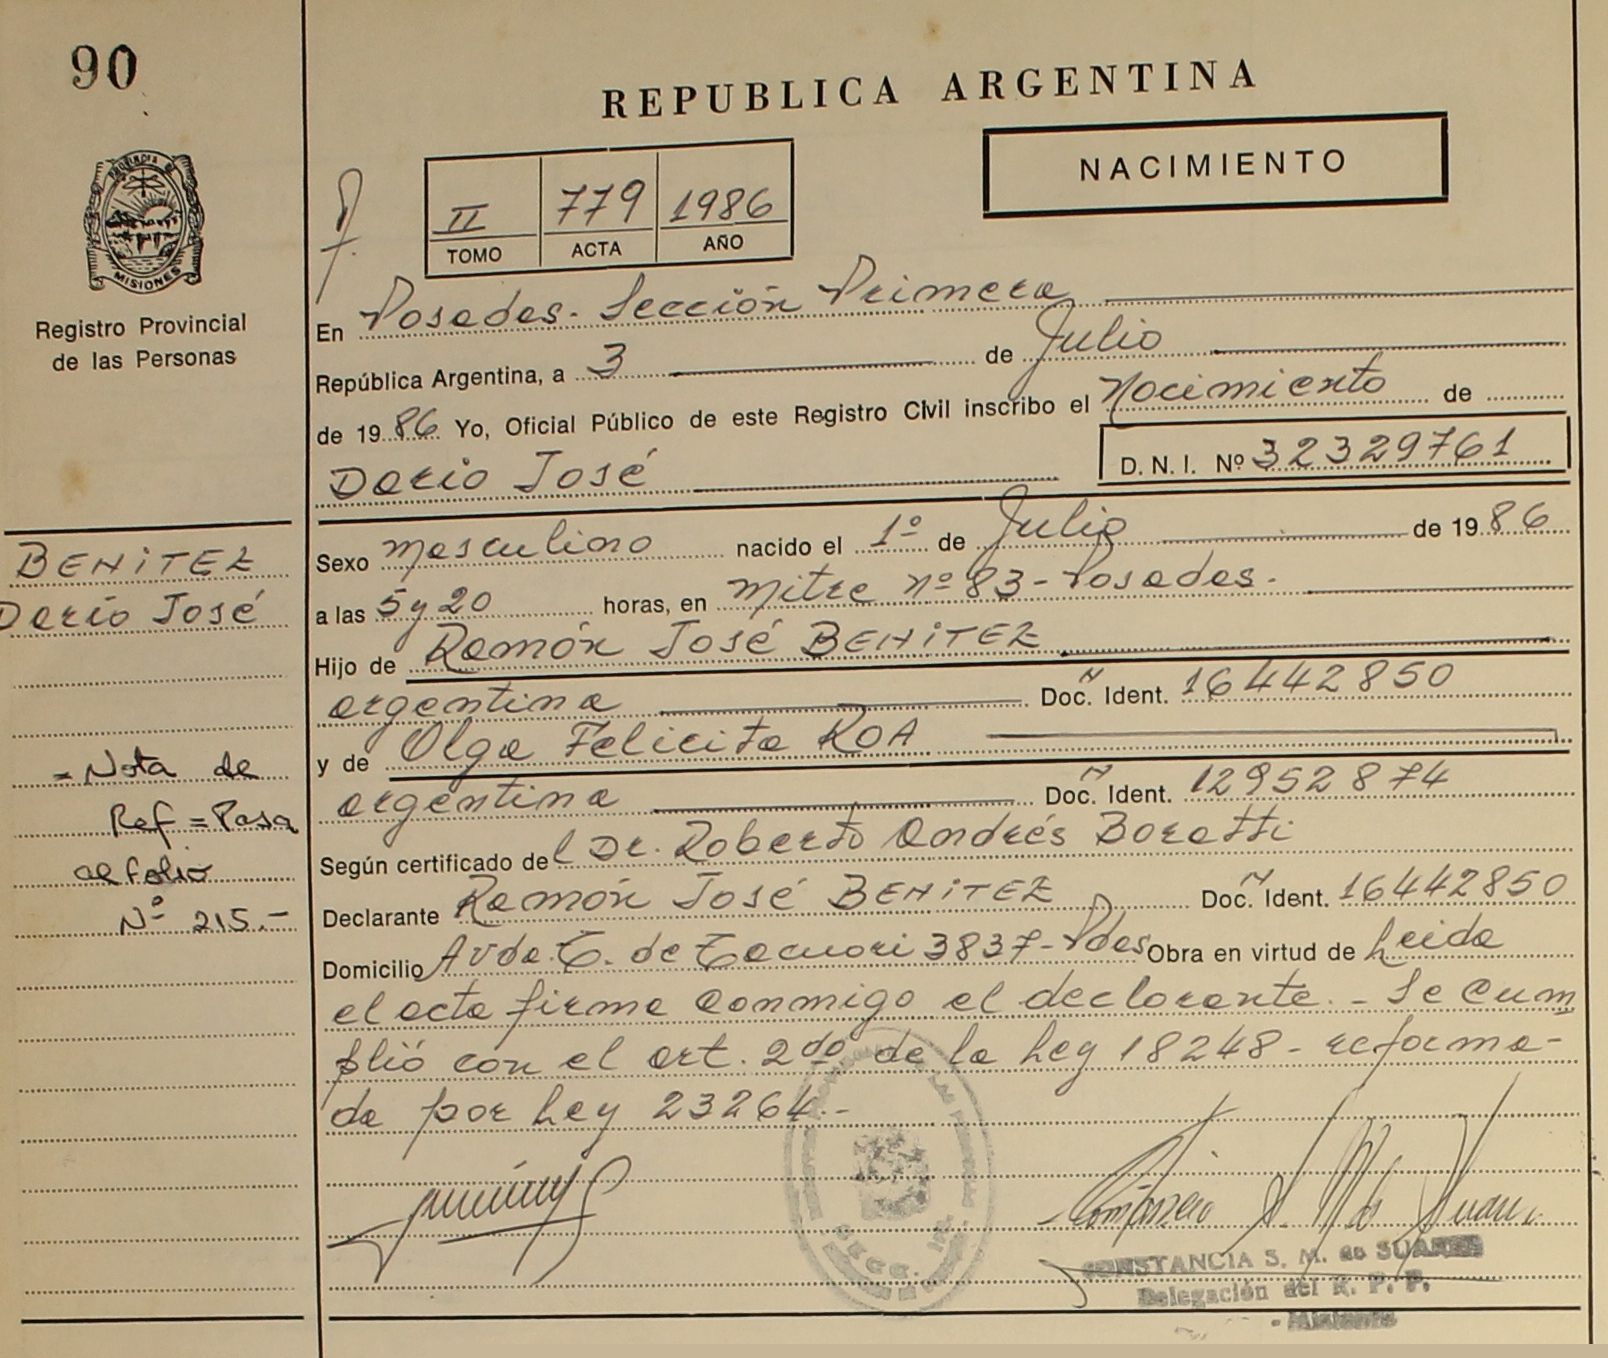 90
REPUBLICA ARGENTINA
NACIMIENTO
II 779 1986
TOMO ACTA AÑO
PROVINCIA DE
MISIONES
Registro Provincial
de las Personas
En Posadas - Sección Primera
República Argentina, a 3 de Julio
de 1986 Yo, Oficial Público de este Registro Civil inscribo el Nacimiento de
Darío José D. N. I. Nº 32329761
BENITEZ
Darío José
Sexo masculino nacido el 1º de Julio de 1986
a las 5 y 20 horas, en Mitre nº 83 - Posadas.
Hijo de Ramón José BENITEZ
argentina Doc. Ident. 16442850
y de Olga Felicita ROA
argentina Doc. Ident. 12952874
Según certificado del Dr. Roberto Andrés Boretti
Declarante Ramón José BENITEZ Doc. Ident. 16442850
Domicilio Avda. T. de Tacuari 3837 - Pdas Obra en virtud de Leida
el acta firma conmigo el declarante. - Se cum
plió con el art. 2do de la Ley 18248 - reforma-
da por Ley 23264.-
= Nota de
Ref = Pasa
al folio
Nº 215.-
CONSTANCIA S. M. de SUAREZ
Delegación del R. P. P.
- Misiones